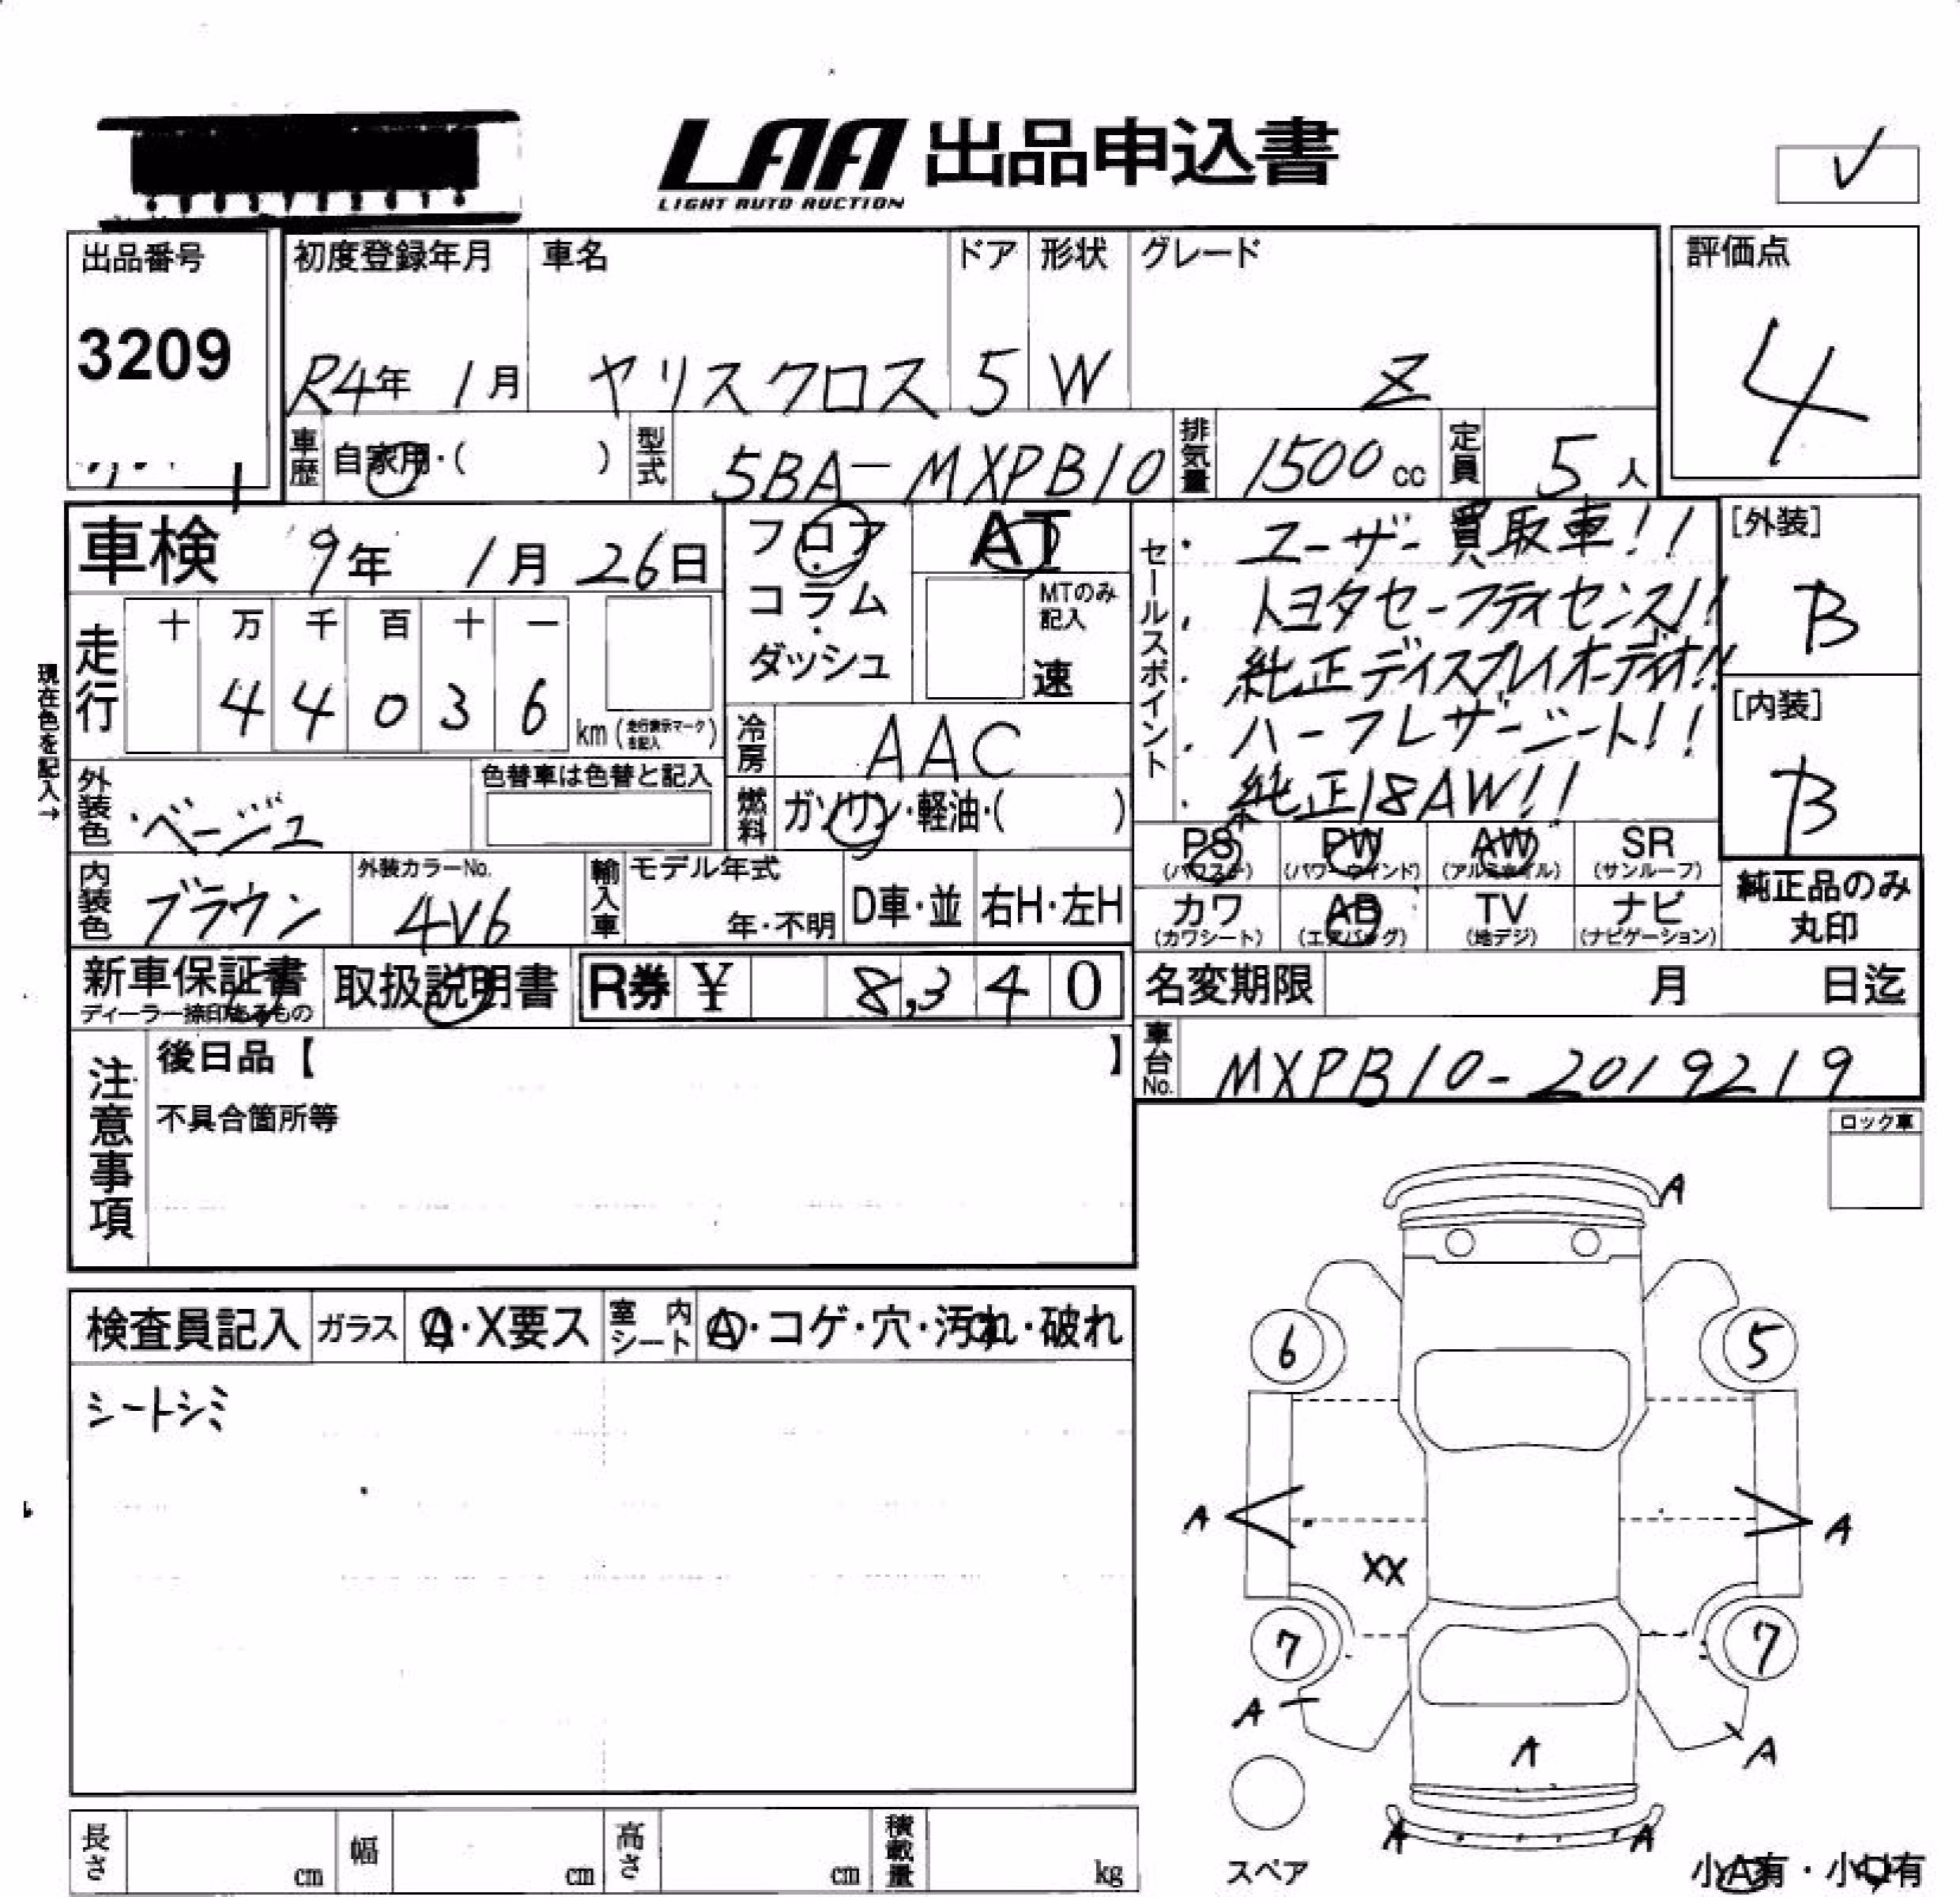 LAA 出品申込書
LIGHT AUTO AUCTION
✓
出品番号
3209
初度登録年月
R4年 1月
車名
ヤリスクロス
ドア
5
形状
W
グレード
Z
評価点
4
車歴 自家用・( )
型式 5BA-MXPB10
排気量 1500cc
定員 5人
車検 9年 1月 26日
フロア・コラム・ダッシュ
AT
MTのみ記入
速
セールスポイント
・ユーザー買取車!!
・トヨタセーフティセンス!!
・純正ディスプレイオーディオ!!
・ハーフレザーシート!!
・純正18AW!!
[外装]
B
[内装]
B
現在色を記入→
走行
十 万 千 百 十 一
4 4 0 3 6 km (走行表示マーク右記入)
冷房 AAC
外装色 ベージュ
色替車は色替と記入
燃料 ガソリン・軽油・( )
PS (パワステ) PW (パワーウインド) AW (アルミホイル) SR (サンルーフ)
カワ (カワシート) AB (エアバッグ) TV (地デジ) ナビ (ナビゲーション)
純正品のみ丸印
内装色 ブラウン
外装カラーNo. 4V6
輸入車 モデル年式 年・不明 D車・並 右H・左H
新車保証書
ディーラー捺印あるもの
取扱説明書
R券 ¥ 8,340
名変期限 月 日迄
車台No. MXPB10-2019219
注意事項
後日品【 】
不具合箇所等
ロック車
検査員記入 ガラス A・X要ス 室内シート A・コゲ・穴・汚れ・破れ
シートシミ
A
6 5
A A
XX
7 7
A A
A
A A
スペア
小A有・小U有
長さ cm 幅 cm 高さ cm 積載量 kg